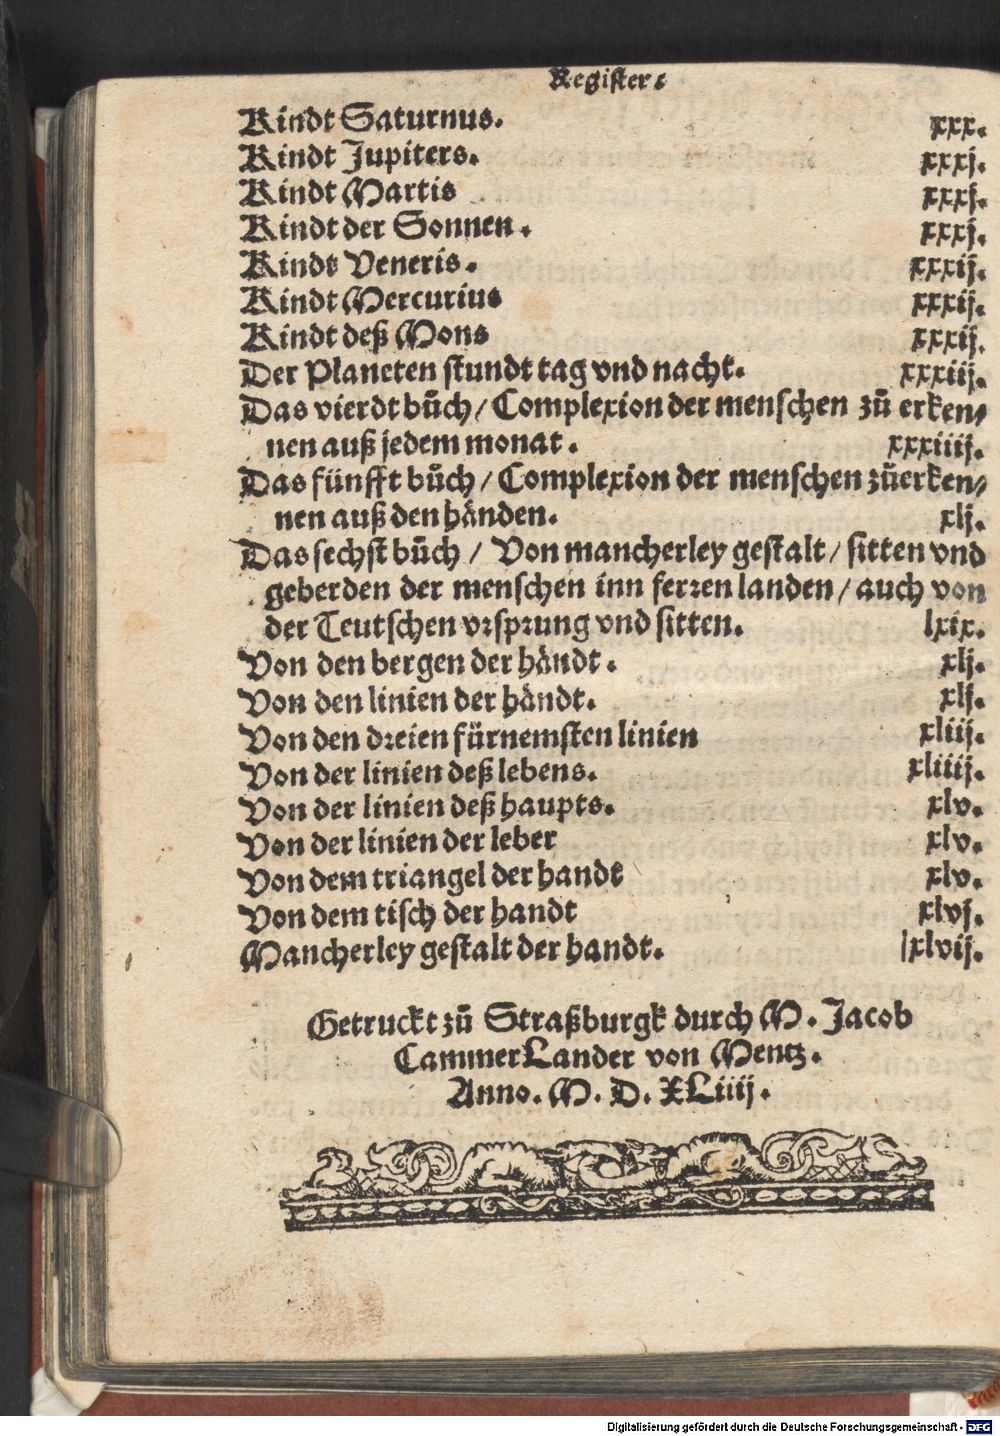 Register.
Kindt Saturnus. xxx.
Kindt Jupiters. xxxj.
Kindt Martis xxxj.
Kindt der Sonnen. xxxj.
Kindt Veneris. xxxij.
Kindt Mercurius xxxij.
Kindt deß Mons xxxij.
Der Planeten stundt tag vnd nacht. xxxiij.
Das vierdt bůch / Complexion der menschen zů erken-
nen auß jedem monat. xxxiiij.
Das fünfft bůch / Complexion der menschen zůerken-
nen auß den händen. xlj.
Das sechst bůch / Von mancherley gestalt / sitten vnd
geberden der menschen inn ferren landen / auch von
der Teutschen vrsprung vnd sitten. lxix.
Von den bergen der händt. xlj.
Von den linien der händt. xlj.
Von den dreien fürnemsten linien xliij.
Von der linien deß lebens. xliiij.
Von der linien deß haupts. xlv.
Von der linien der leber xlv.
Von dem triangel der handt xlv.
Von dem tisch der handt xlvj.
Mancherley gestalt der handt. xlvij.
Getruckt zů Straßburgk durch M. Jacob
CammerLander von Mentz.
Anno. M. D. XLiiij.
Digitalisierung gefördert durch die Deutsche Forschungsgemeinschaft - DFG